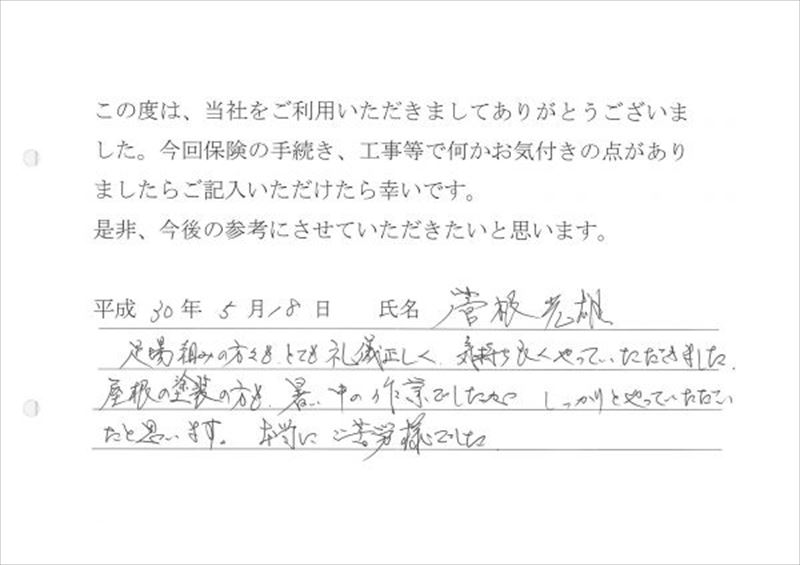 この度は、当社をご利用いただきましてありがとうございま
した。今回保険の手続き、工事等で何かお気付きの点があり
ましたらご記入いただけたら幸いです。
是非、今後の参考にさせていただきたいと思います。
平成 30年 5月18日 氏名 菅根 光雄
足場組みの方々も、とても礼儀正しく、気持ち良くやっていただきました。
屋根の塗装の方も、暑い中の作業でしたが しっかりとやっていただい
たと思います。 本当にご苦労様でした